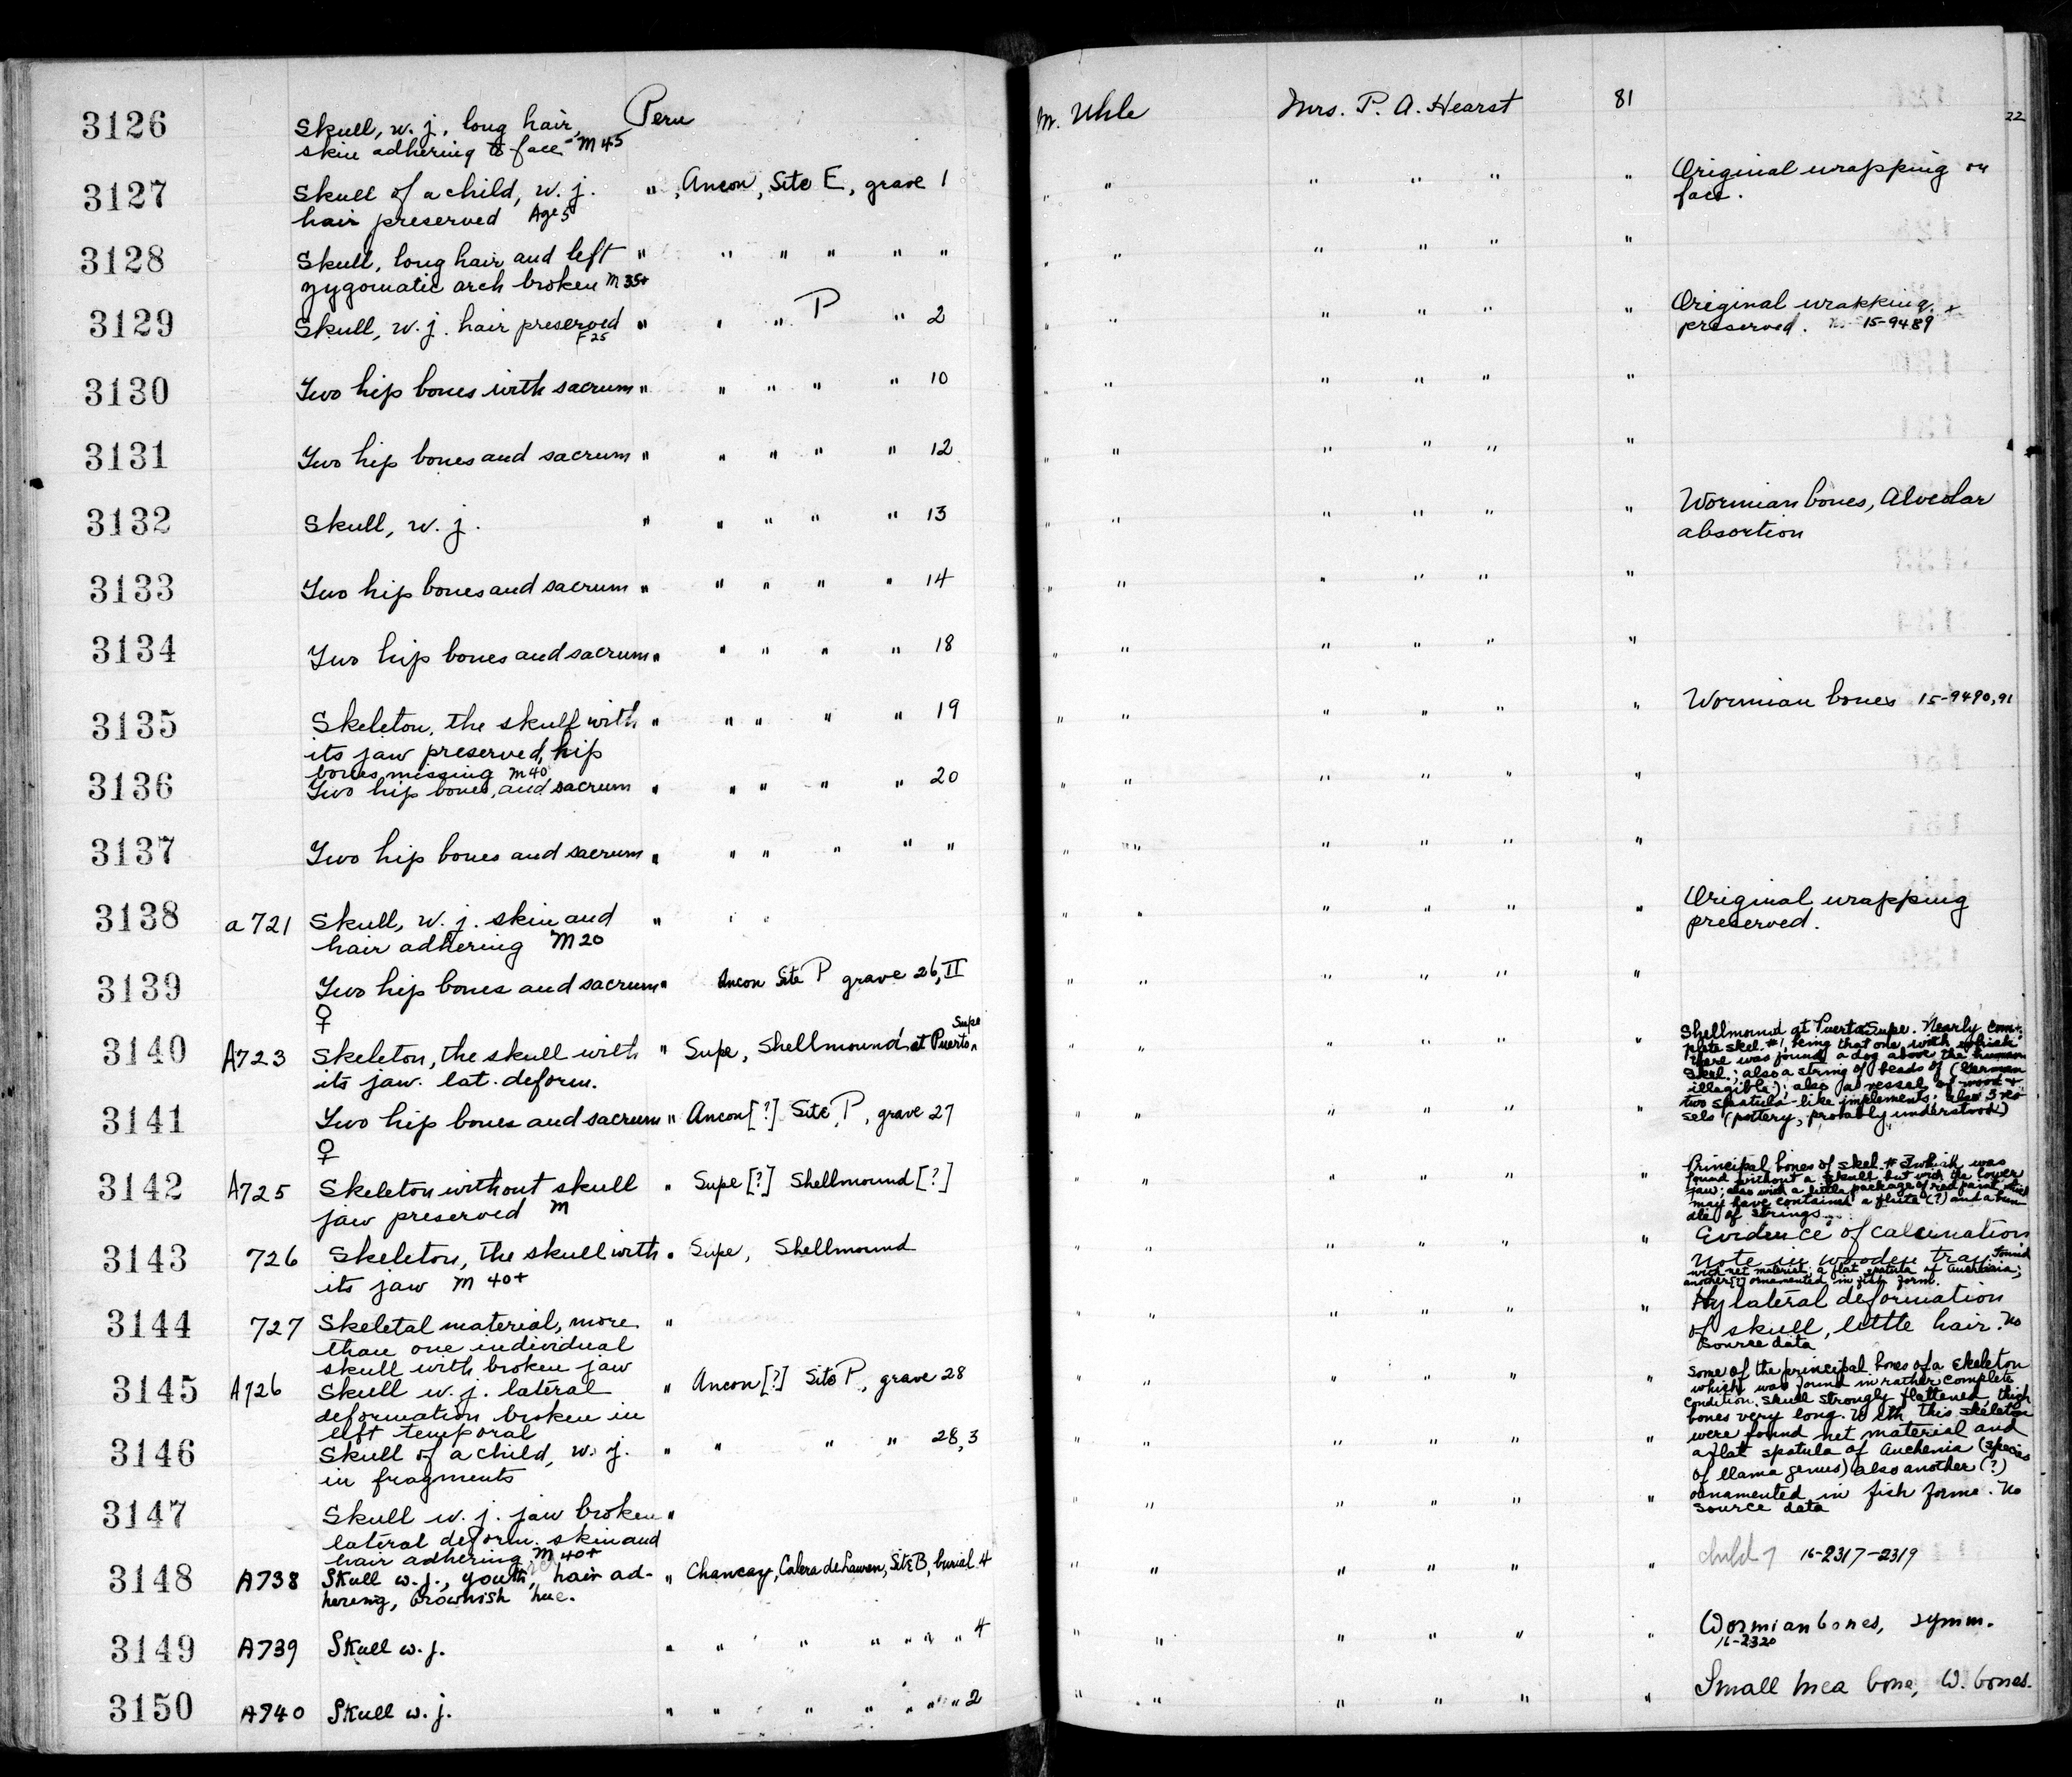 3126 Skull, w. j., long hair, Peru M. Uhle Mrs. P. A. Hearst 81
skin adhering to face - M 45
22
3127 Skull of a child, w. j. " , Ancon, Site E, grave 1 " " " " " " Original wrapping on
hair preserved Age 5 face.
3128 Skull, long hair and left " " " " " " " " " " " "
zygomatic arch broken M 35+
3129 Skull, w. j. hair preserved " " " P " 2 " " " " " " Original wrapping
F 25 preserved. 15-9489
3130 Two hip bones with sacrum " " " " " 10 " " " " " "
3131 Two hip bones and sacrum " " " " " 12 " " " " " "
3132 Skull, w. j. " " " " " 13 " " " " " " Wormian bones, Alveolar
absortion
3133 Two hip bones and sacrum " " " " " 14 " " " " " "
3134 Two hip bones and sacrum " " " " " 18 " " " " " "
3135 Skeleton, the skull with " " " " " 19 " " " " " " Wormian bones 15-9490,91
its jaw preserved, hip
bones missing M 40
3136 Two hip bones, and sacrum " " " " " 20 " " " " " "
3137 Two hip bones and sacrum " " " " " " " " " " " "
3138 a 721 Skull, w. j. skin and " " " " " " " " " Original wrapping
hair adhering M 20 preserved.
3139 Two hip bones and sacrum " Ancon Site P grave 26, II " " " " " "
♀
3140 A723 Skeleton, the skull with " Supe, Shellmound at Puerto Supe " " " " " "
its jaw. lat. deform.
Shellmound at Puerto Supe. Nearly com-
plete skel. #1, being that one with which
there was found a dog above the human
skel.; also a string of beads of (German
illegible); also a vessel of wood +
two spatula-like implements; also 3 ves-
sels (pottery, probably understood)
3141 Two hip bones and sacrum " Ancon [?] Site P, grave 27 " " " " " "
♀
3142 A725 Skeleton without skull " Supe [?] Shellmound [?] " " " " " "
jaw preserved M
Principal bones of skel. #3 which was
found without a skull but with the lower
jaw; also with a little package of red paint which
may have contained a flute (?) and a bun-
dle of strings.
3143 726 Skeleton, the skull with " Supe, Shellmound " " " " " " Evidence of calcination
its jaw M 40+
Note in wooden tray found
with net material; a flat spatula of Auchenia;
another [?] ornamented in fish form.
3144 727 Skeletal material, more " " " " " " " Hy lateral deformation
than one individual of skull, little hair. No
skull with broken jaw source data
3145 A726 Skull w. j. lateral " Ancon [?] Site P., grave 28 " " " " " "
deformation broken in
left temporal
Some of the principal bones of a skeleton
which was found in rather complete
condition. Skull strongly flattened, thigh
bones very long. With this skeleton
were found net material and
a flat spatula of Auchenia (species
of llama genus) also another (?)
ornamented in fish forme. No
source data
3146 Skull of a child, w. j. " " " " 28, 3 " " " " " "
in fragments
3147 Skull w. j. jaw broken " " " " " " "
lateral deform. skin and
hair adhering M 40+
3148 A738 Skull w. j., youth, hair ad- " Chancay, Calera de Lauren, Site B, burial 4 " " " " " " child 7 16-2317-2319
hering, brownish hue.
3149 A739 Skull w. j. " " " " " " " " 4 " " " " " " Wormian bones, symm.
16-2320
3150 A740 Skull w. j. " " " " " " " 2 " " " " " " Small Inca bone, W. bones.